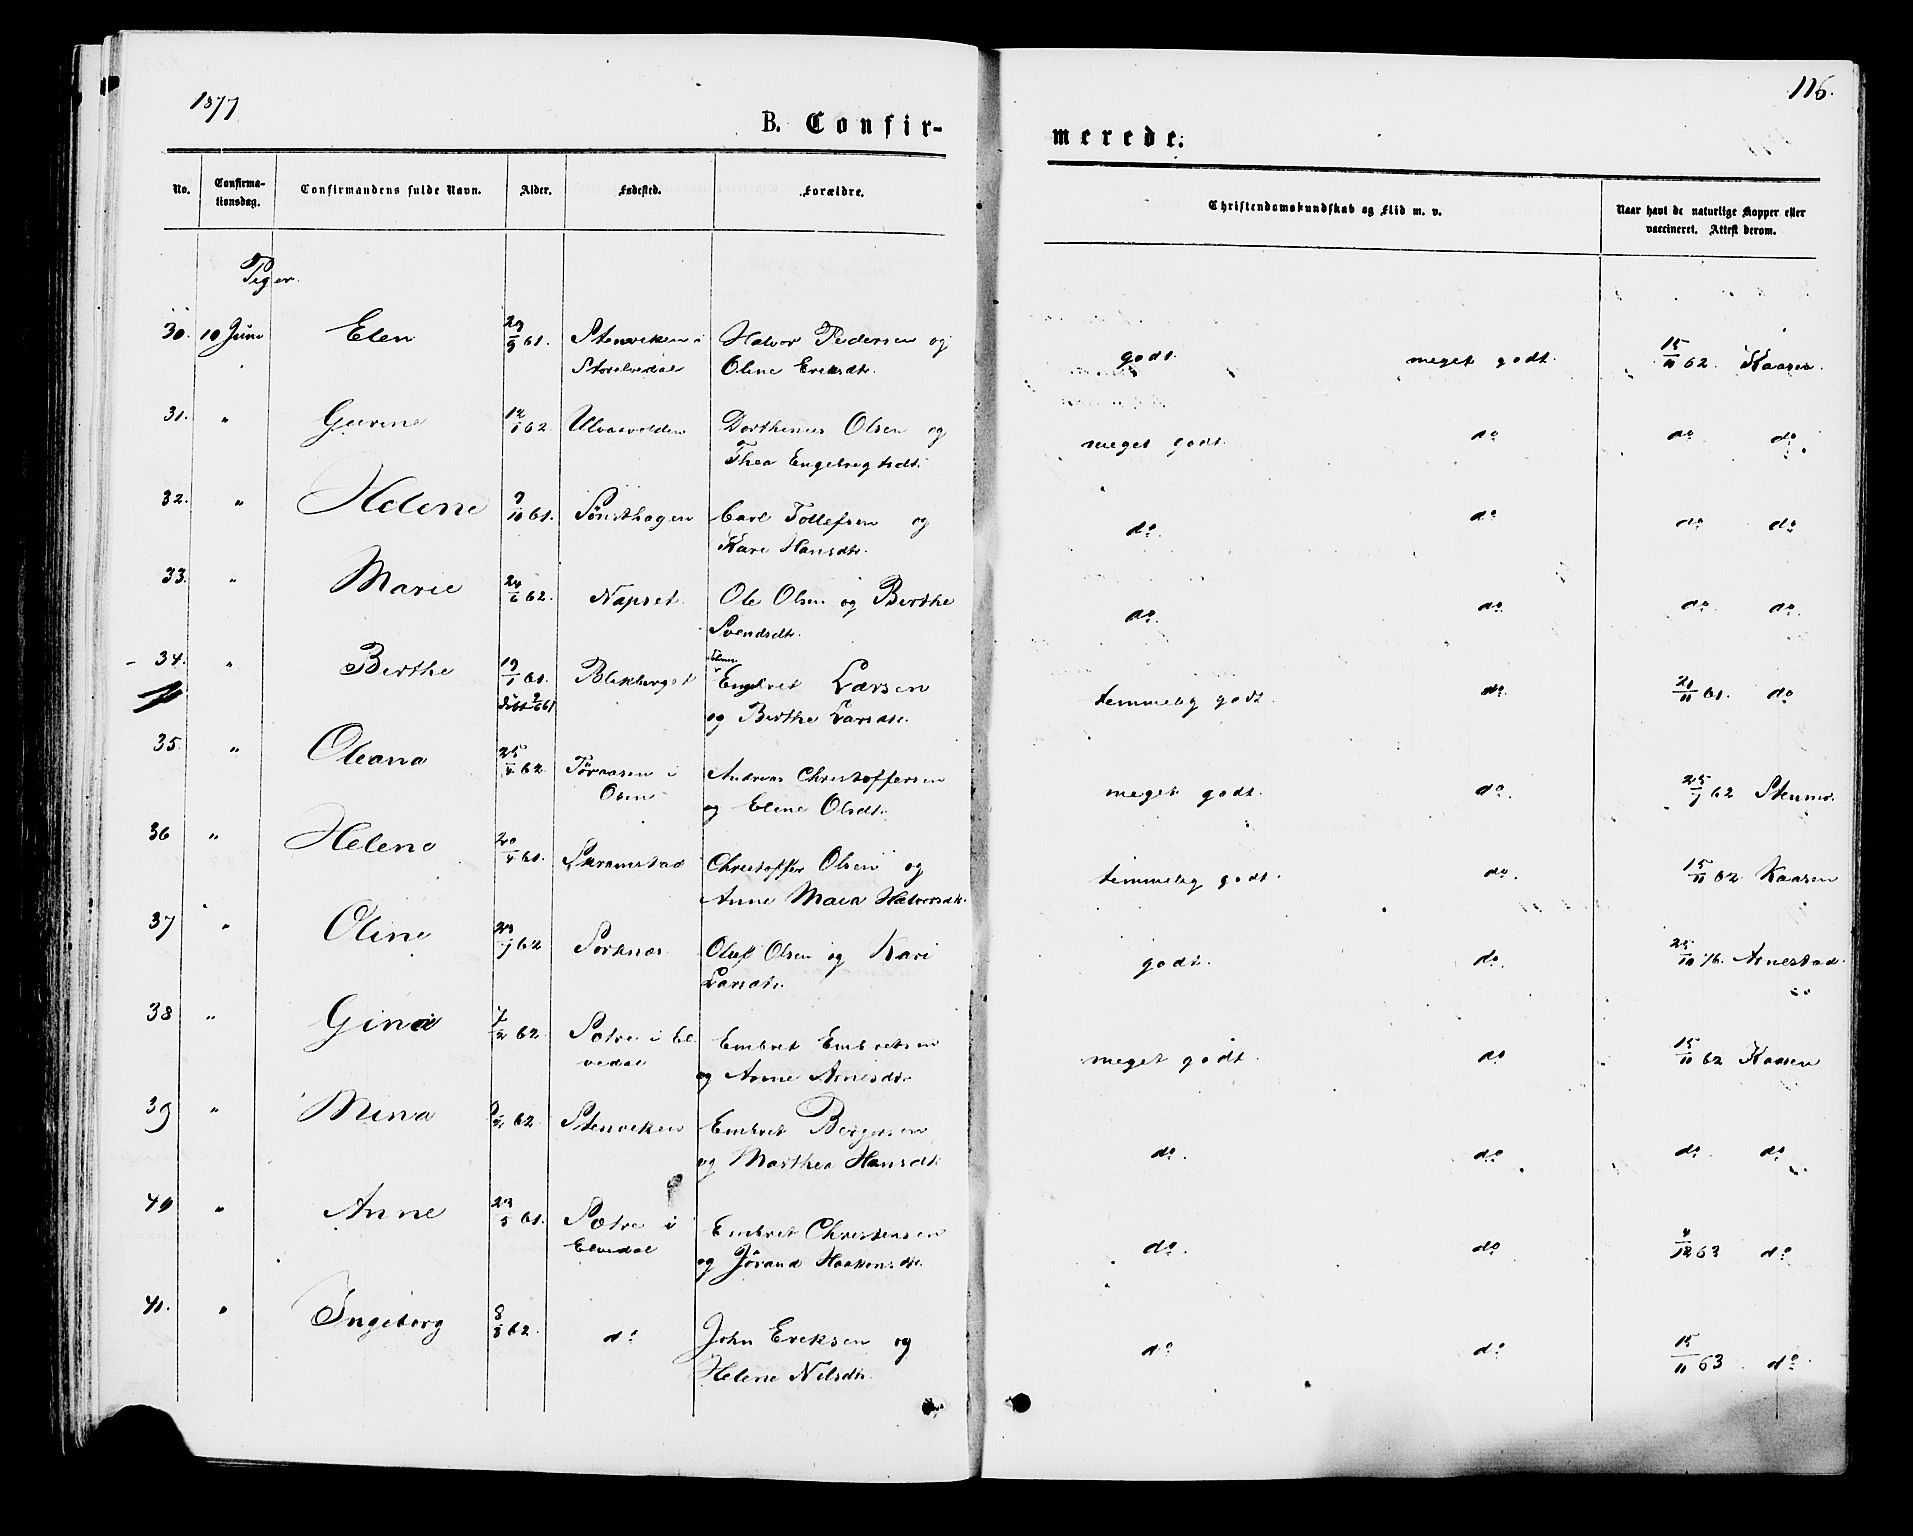 1877
116.
B. Confir-
merede:
No.
Confirma-
tionsdag.
Confirmandens fulde Navn.
Alder.
Fødested.
Forældre.
Christendomskundskab og Flid m. v.
Naar havt de naturlige Kopper eller
vaccineret. Attest derom.
Piger.
30. 10 Juni Elen 29/9 61. Stenviken i Halvor Pedersen og godt. meget godt. 15/11 62. Kaasen.
Storelvedal Oline Eriksdtr.
31. " Gurine 12/1 62. Ulvaavolden Dorthenius Olsen og meget godt. do do do
Thea Engebregtsdtr.
32. " Helene 9/10 61. Sønsthagen Carl Tollefsen og do. do do do
Kari Hansdtr.
33. " Marie 24/6 62. Napset. Ole Olsen og Berthe do. do do. do.
Svendsdtr.
34. " Berthe 19/1 61. Blekberget Engebret Larsen temmelig godt. do 21/11 61. do
og Berthe Larsdtr.
35. " Oleana 25/4 62. Tøraasen i Andreas Christoffersen meget godt. do. 25/7 62
Osen og Eline Olsdtr.
36 " Helene 20/4 61. Skramstad Christoffer Olsen og temmelig godt. do. 15/11 62 Kaasen
Anne Maria Halvorsdtr.
37 " Oline 23/7 62 Sorknæs. Oluf Olsen og Kari godt. do. 25/10 76. Arnestad.
Larsdtr.
38 " Gina 7/2 62 Sætre i El Embret Embretsen meget godt. do 15/11 62 Kaasen
vedal og Anne Arnesdtr.
39 " Mina 62 Stenviken Embret Bergersen do. do do. do
og Marthea Hansdtr.
40 " Anne 23/5 61. Sætre i Embret Christensen do. do 4/12 63 do.
Elvedal og Jørand Haakensdtr.
41. " Ingeborg 8/3 62. do John Eriksen og do do 15/11 63. do.
Helene Nilsdtr.